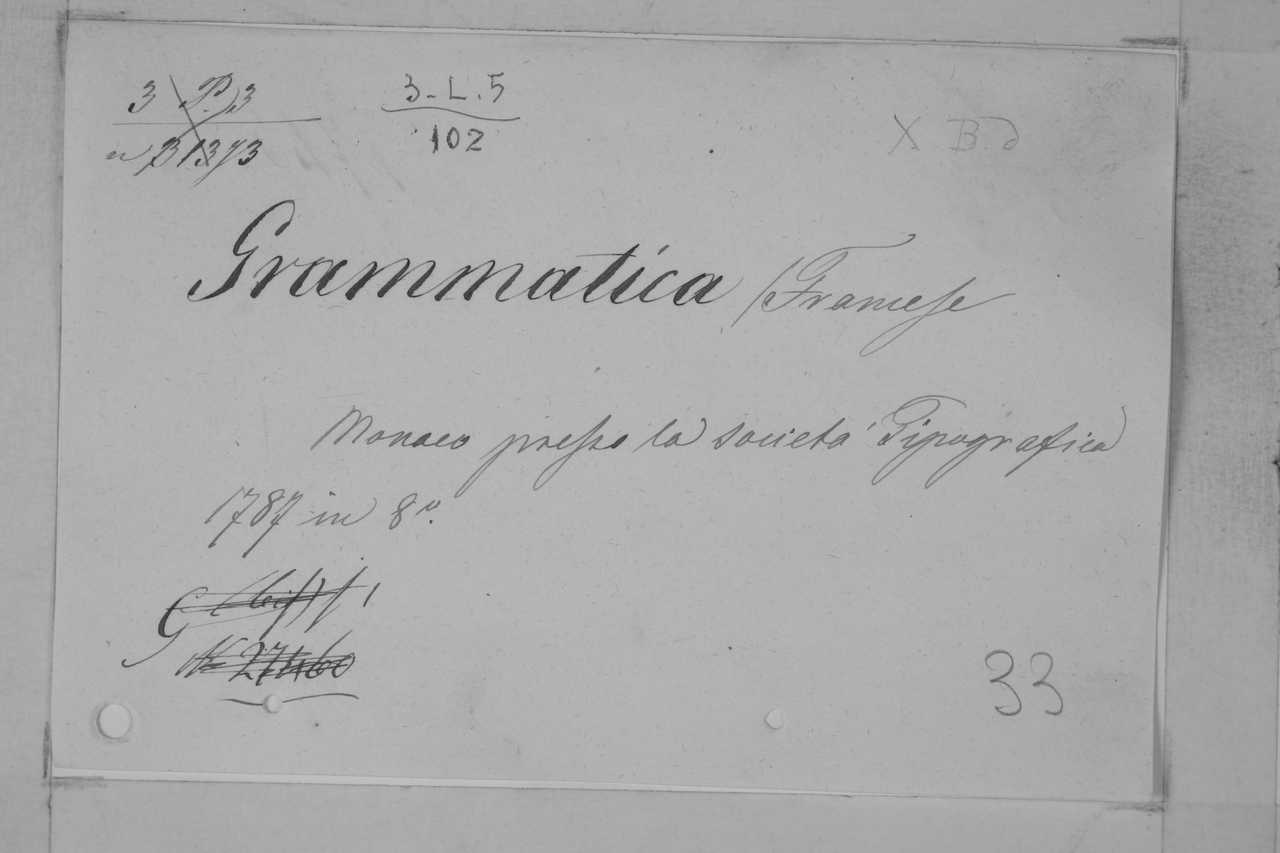 3 P. 3
3-L.5
102
X B.d
Grammatica /Francese
Monaco presso la società Tipografica
1787 in 8º.
G
Nº 27460
33